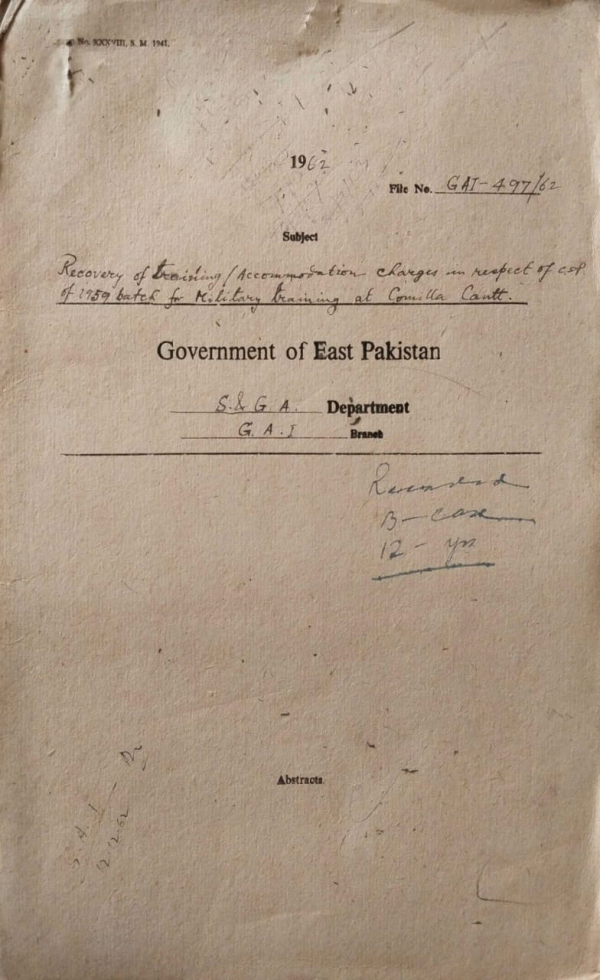 No. XXXVIII, S. M. 1941.
1962
File No. GAI-497/62
Subject
Recovery of training/Accommodation charges in respect of C.S.P.
of 1959 batch for Military training at Comilla Cantt.
Government of East Pakistan
S.& G.A. Department
G.A.I Branch
B-case
12-yrs
Abstracts
12.62